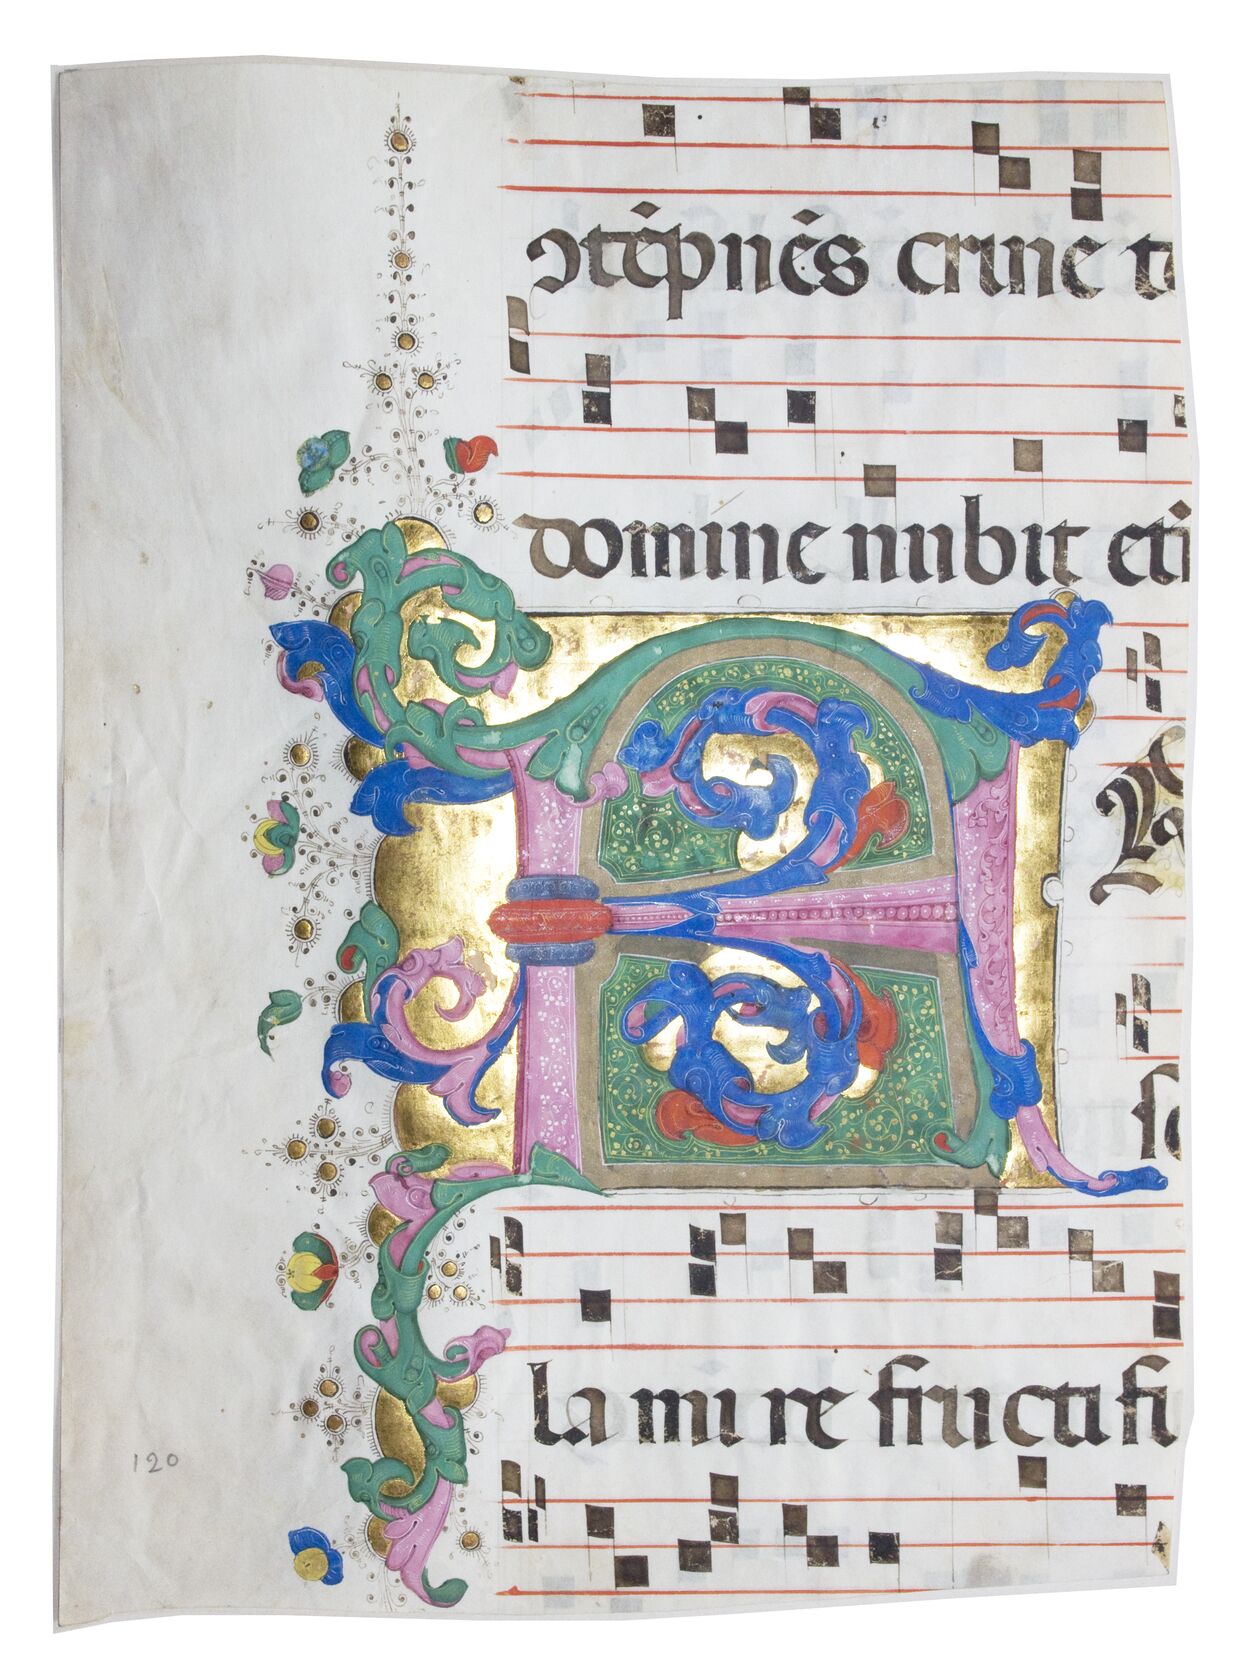 ꝯtēpnēs crine t
domine nubit eti
A
la mi re fructifi
120